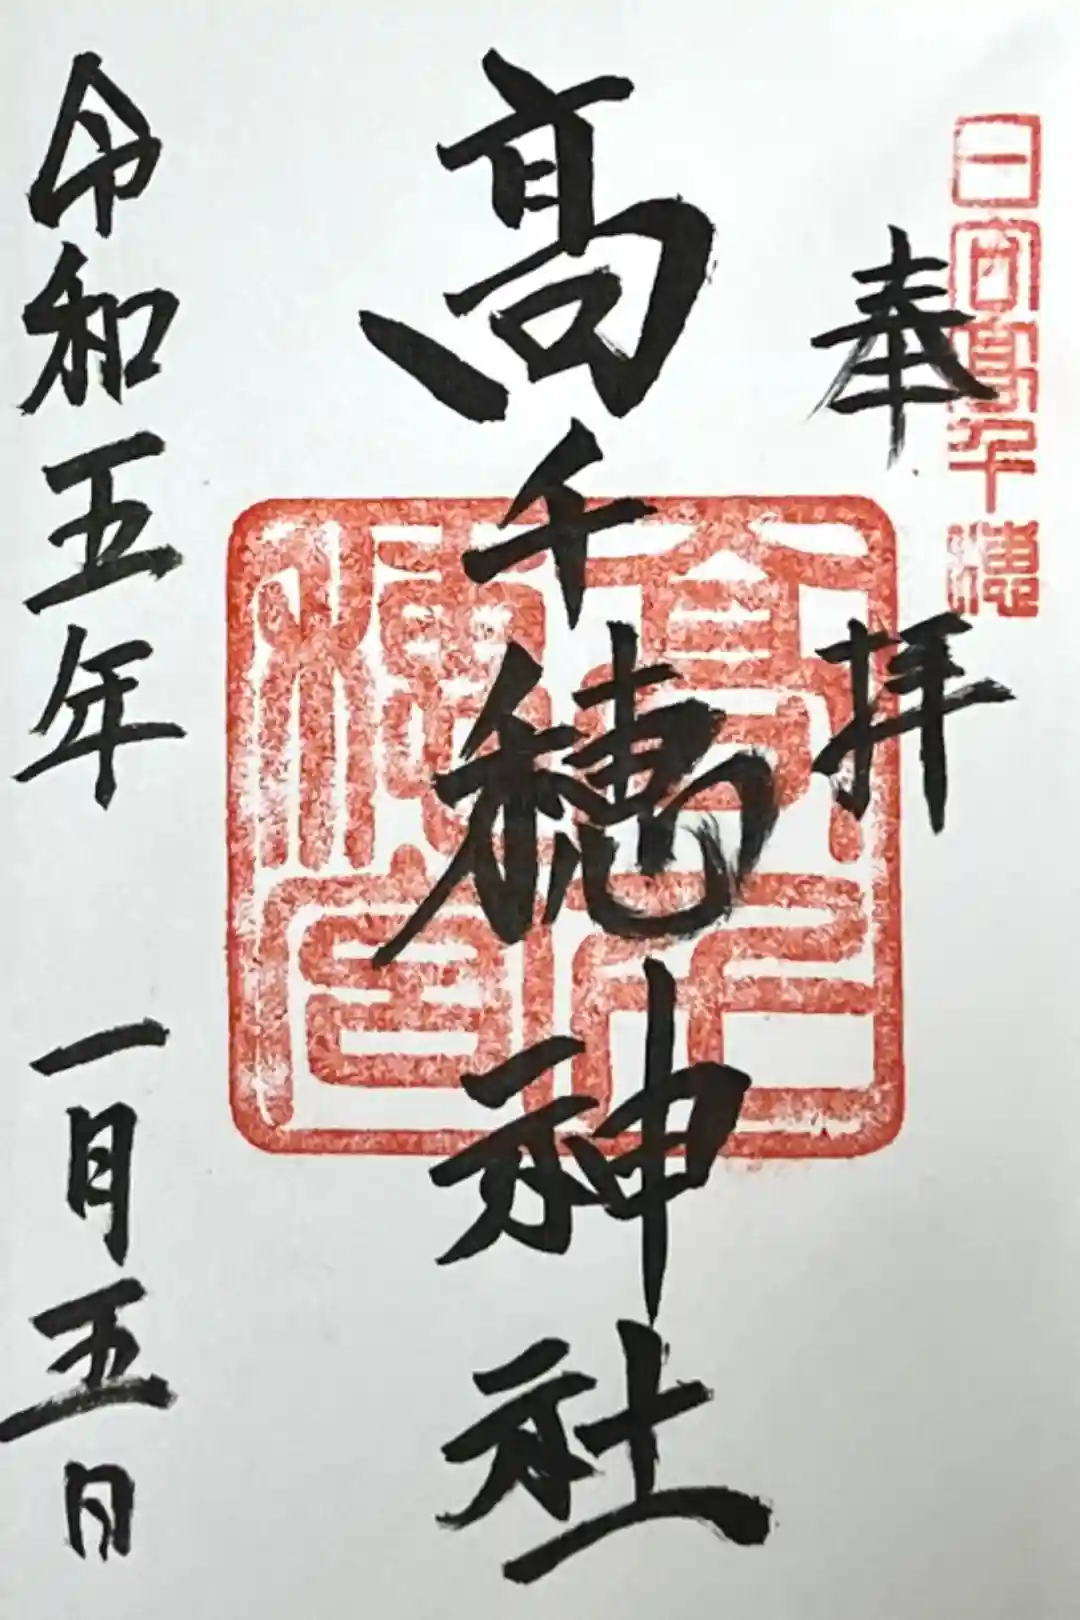 日向高千穂
奉拝
高千穂神社
令和五年 一月五日